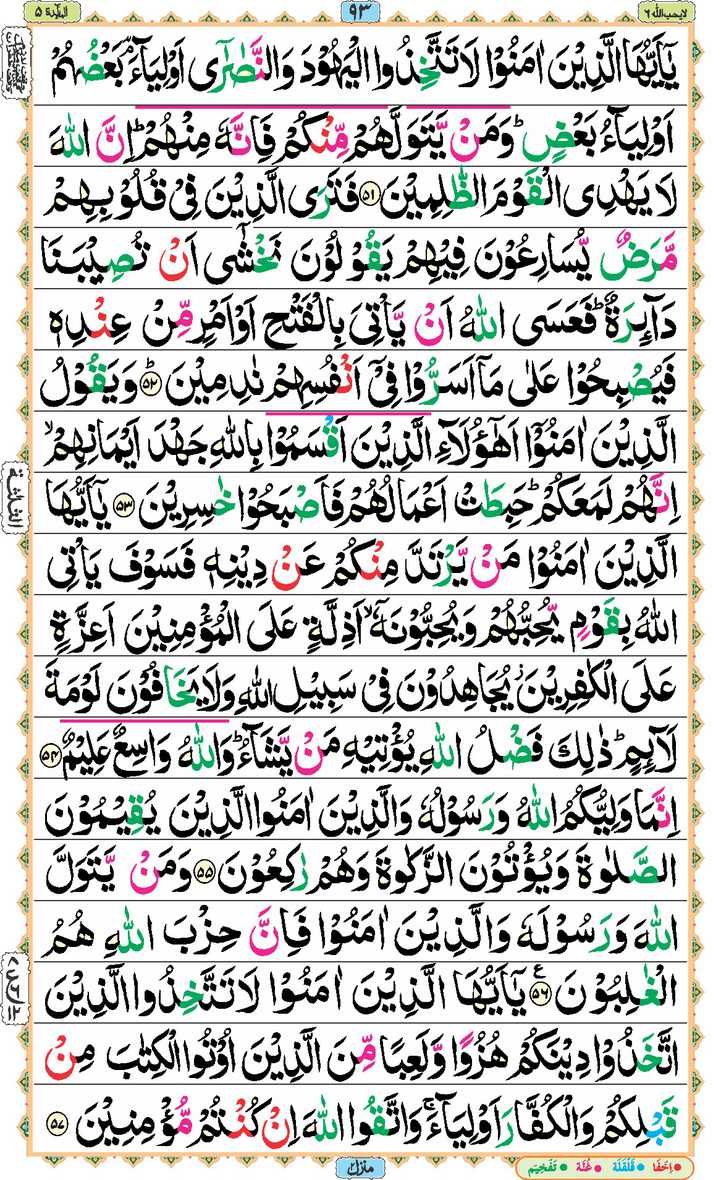 لا يحب الله ٦
٩٣
المآئدة ٥
يٰۤاَيُّهَا الَّذِيْنَ اٰمَنُوْا لَا تَتَّخِذُوا الْيَهُوْدَ وَالنَّصٰرٰۤى اَوْلِيَآءَ ؔۘ بَعْضُهُمْ
اَوْلِيَآءُ بَعْضٍ ؕ وَمَنْ يَّتَوَلَّهُمْ مِّنْكُمْ فَاِنَّهٗ مِنْهُمْ ؕ اِنَّ اللّٰهَ
لَا يَهْدِى الْقَوْمَ الظّٰلِمِيْنَ ٥١ فَتَرَى الَّذِيْنَ فِىْ قُلُوْبِهِمْ
مَّرَضٌ يُّسَارِعُوْنَ فِيْهِمْ يَقُوْلُوْنَ نَخْشٰٓى اَنْ تُصِيْبَنَا
دَآئِرَةٌ ؕ فَعَسَى اللّٰهُ اَنْ يَّاْتِىَ بِالْفَتْحِ اَوْ اَمْرٍ مِّنْ عِنْدِهٖ
فَيُصْبِحُوْا عَلٰى مَاۤ اَسَرُّوْا فِىْۤ اَنْفُسِهِمْ نٰدِمِيْنَ ؕ ٥٢ وَيَقُوْلُ
الَّذِيْنَ اٰمَنُوْۤا اَهٰٓؤُلَآءِ الَّذِيْنَ اَقْسَمُوْا بِاللّٰهِ جَهْدَ اَيْمَانِهِمْ ۙ
اِنَّهُمْ لَمَعَكُمْ ؕ حَبِطَتْ اَعْمَالُهُمْ فَاَصْبَحُوْا خٰسِرِيْنَ ٥٣ يٰۤاَيُّهَا
الَّذِيْنَ اٰمَنُوْا مَنْ يَّرْتَدَّ مِنْكُمْ عَنْ دِيْنِهٖ فَسَوْفَ يَاْتِى
اللّٰهُ بِقَوْمٍ يُّحِبُّهُمْ وَيُحِبُّوْنَهٗۤ ۙ اَذِلَّةٍ عَلَى الْمُؤْمِنِيْنَ اَعِزَّةٍ
عَلَى الْكٰفِرِيْنَ ؗ يُجَاهِدُوْنَ فِىْ سَبِيْلِ اللّٰهِ وَلَا يَخَافُوْنَ لَوْمَةَ
لَآئِمٍ ؕ ذٰلِكَ فَضْلُ اللّٰهِ يُؤْتِيْهِ مَنْ يَّشَآءُ ؕ وَاللّٰهُ وَاسِعٌ عَلِيْمٌ ٥٤
اِنَّمَا وَلِيُّكُمُ اللّٰهُ وَرَسُوْلُهٗ وَالَّذِيْنَ اٰمَنُوا الَّذِيْنَ يُقِيْمُوْنَ
الصَّلٰوةَ وَيُؤْتُوْنَ الزَّكٰوةَ وَهُمْ رٰكِعُوْنَ ٥٥ وَمَنْ يَّتَوَلَّ
اللّٰهَ وَرَسُوْلَهٗ وَالَّذِيْنَ اٰمَنُوْا فَاِنَّ حِزْبَ اللّٰهِ هُمُ
الْغٰلِبُوْنَ ٥٦ ع يٰۤاَيُّهَا الَّذِيْنَ اٰمَنُوْا لَا تَتَّخِذُوا الَّذِيْنَ
اتَّخَذُوْا دِيْنَكُمْ هُزُوًا وَّلَعِبًا مِّنَ الَّذِيْنَ اُوْتُوا الْكِتٰبَ مِنْ
قَبْلِكُمْ وَالْكُفَّارَ اَوْلِيَآءَ ۚ وَاتَّقُوا اللّٰهَ اِنْ كُنْتُمْ مُّؤْمِنِيْنَ ٥٧
منزل ٢
اِخْفَا • قَلْقَلَه • غُنَّه • تَفْخِيْم •